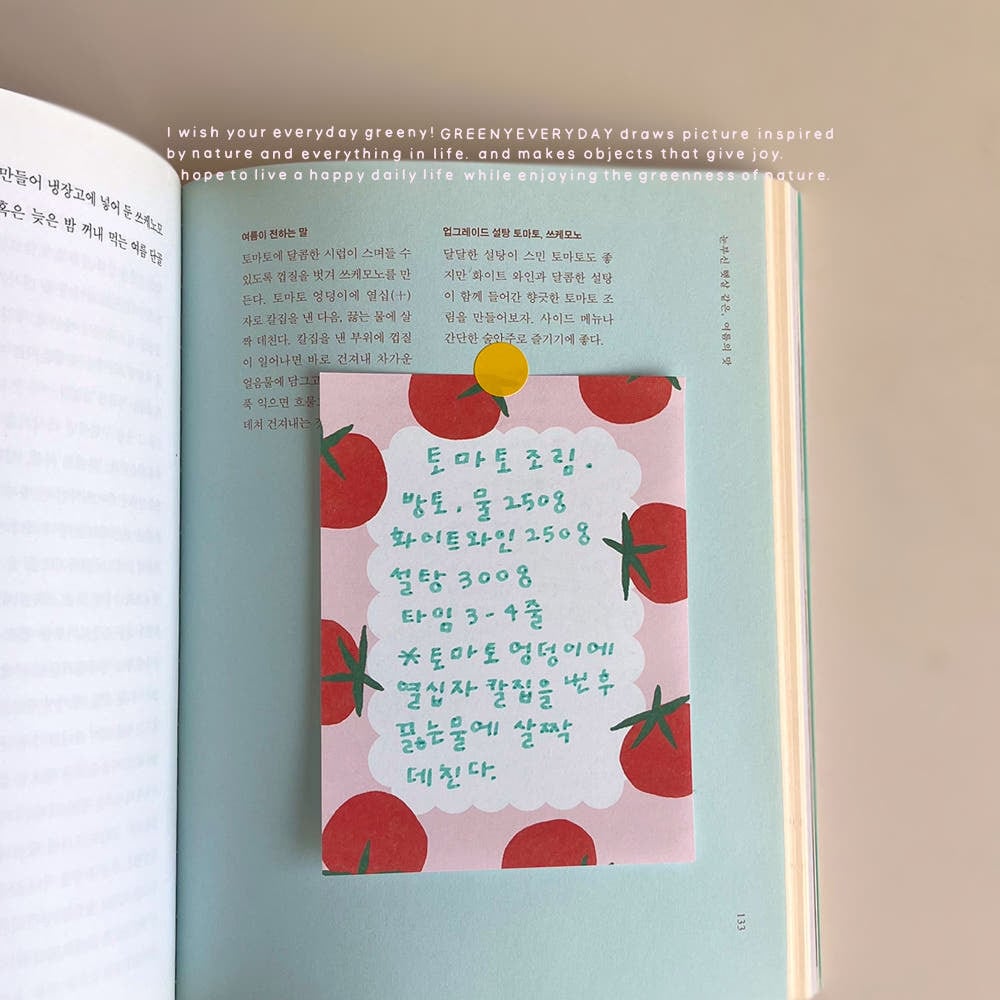 I wish your everyday greeny! GREENYEVERYDAY draws picture inspired
by nature and everything in life. and makes objects that give joy.
hope to live a happy daily life while enjoying the greenness of nature.
만들어 냉장고에 넣어 둔 쓰케노모
혹은 늦은 밤 꺼내 먹는 여름 단골
여름이 전하는 말
토마토에 달콤한 시럽이 스며들 수
있도록 껍질을 벗겨 쓰케모노를 만
든다. 토마토 엉덩이에 열십(十)
자로 칼집을 낸 다음, 끓는 물에 살
짝 데친다. 칼집을 낸 부위에 껍질
이 일어나면 바로 건져내 차가운
얼음물에 담그고
푹 익으면 흐물
데쳐 건져내는
업그레이드 설탕 토마토, 쓰케모노
달달한 설탕이 스민 토마토도 좋
지만 화이트 와인과 달콤한 설탕
이 함께 들어간 향긋한 토마토 조
림을 만들어보자. 사이드 메뉴나
간단한 술안주로 즐기기에 좋다.
눈부신 햇살 같은, 여름의 맛
토마토조림.
방토, 물 250g
화이트와인 250g
설탕 300g
타임 3-4줄
*토마토 엉덩이에
열십자 칼집을 낸 후
끓는물에 살짝
데친다.
133